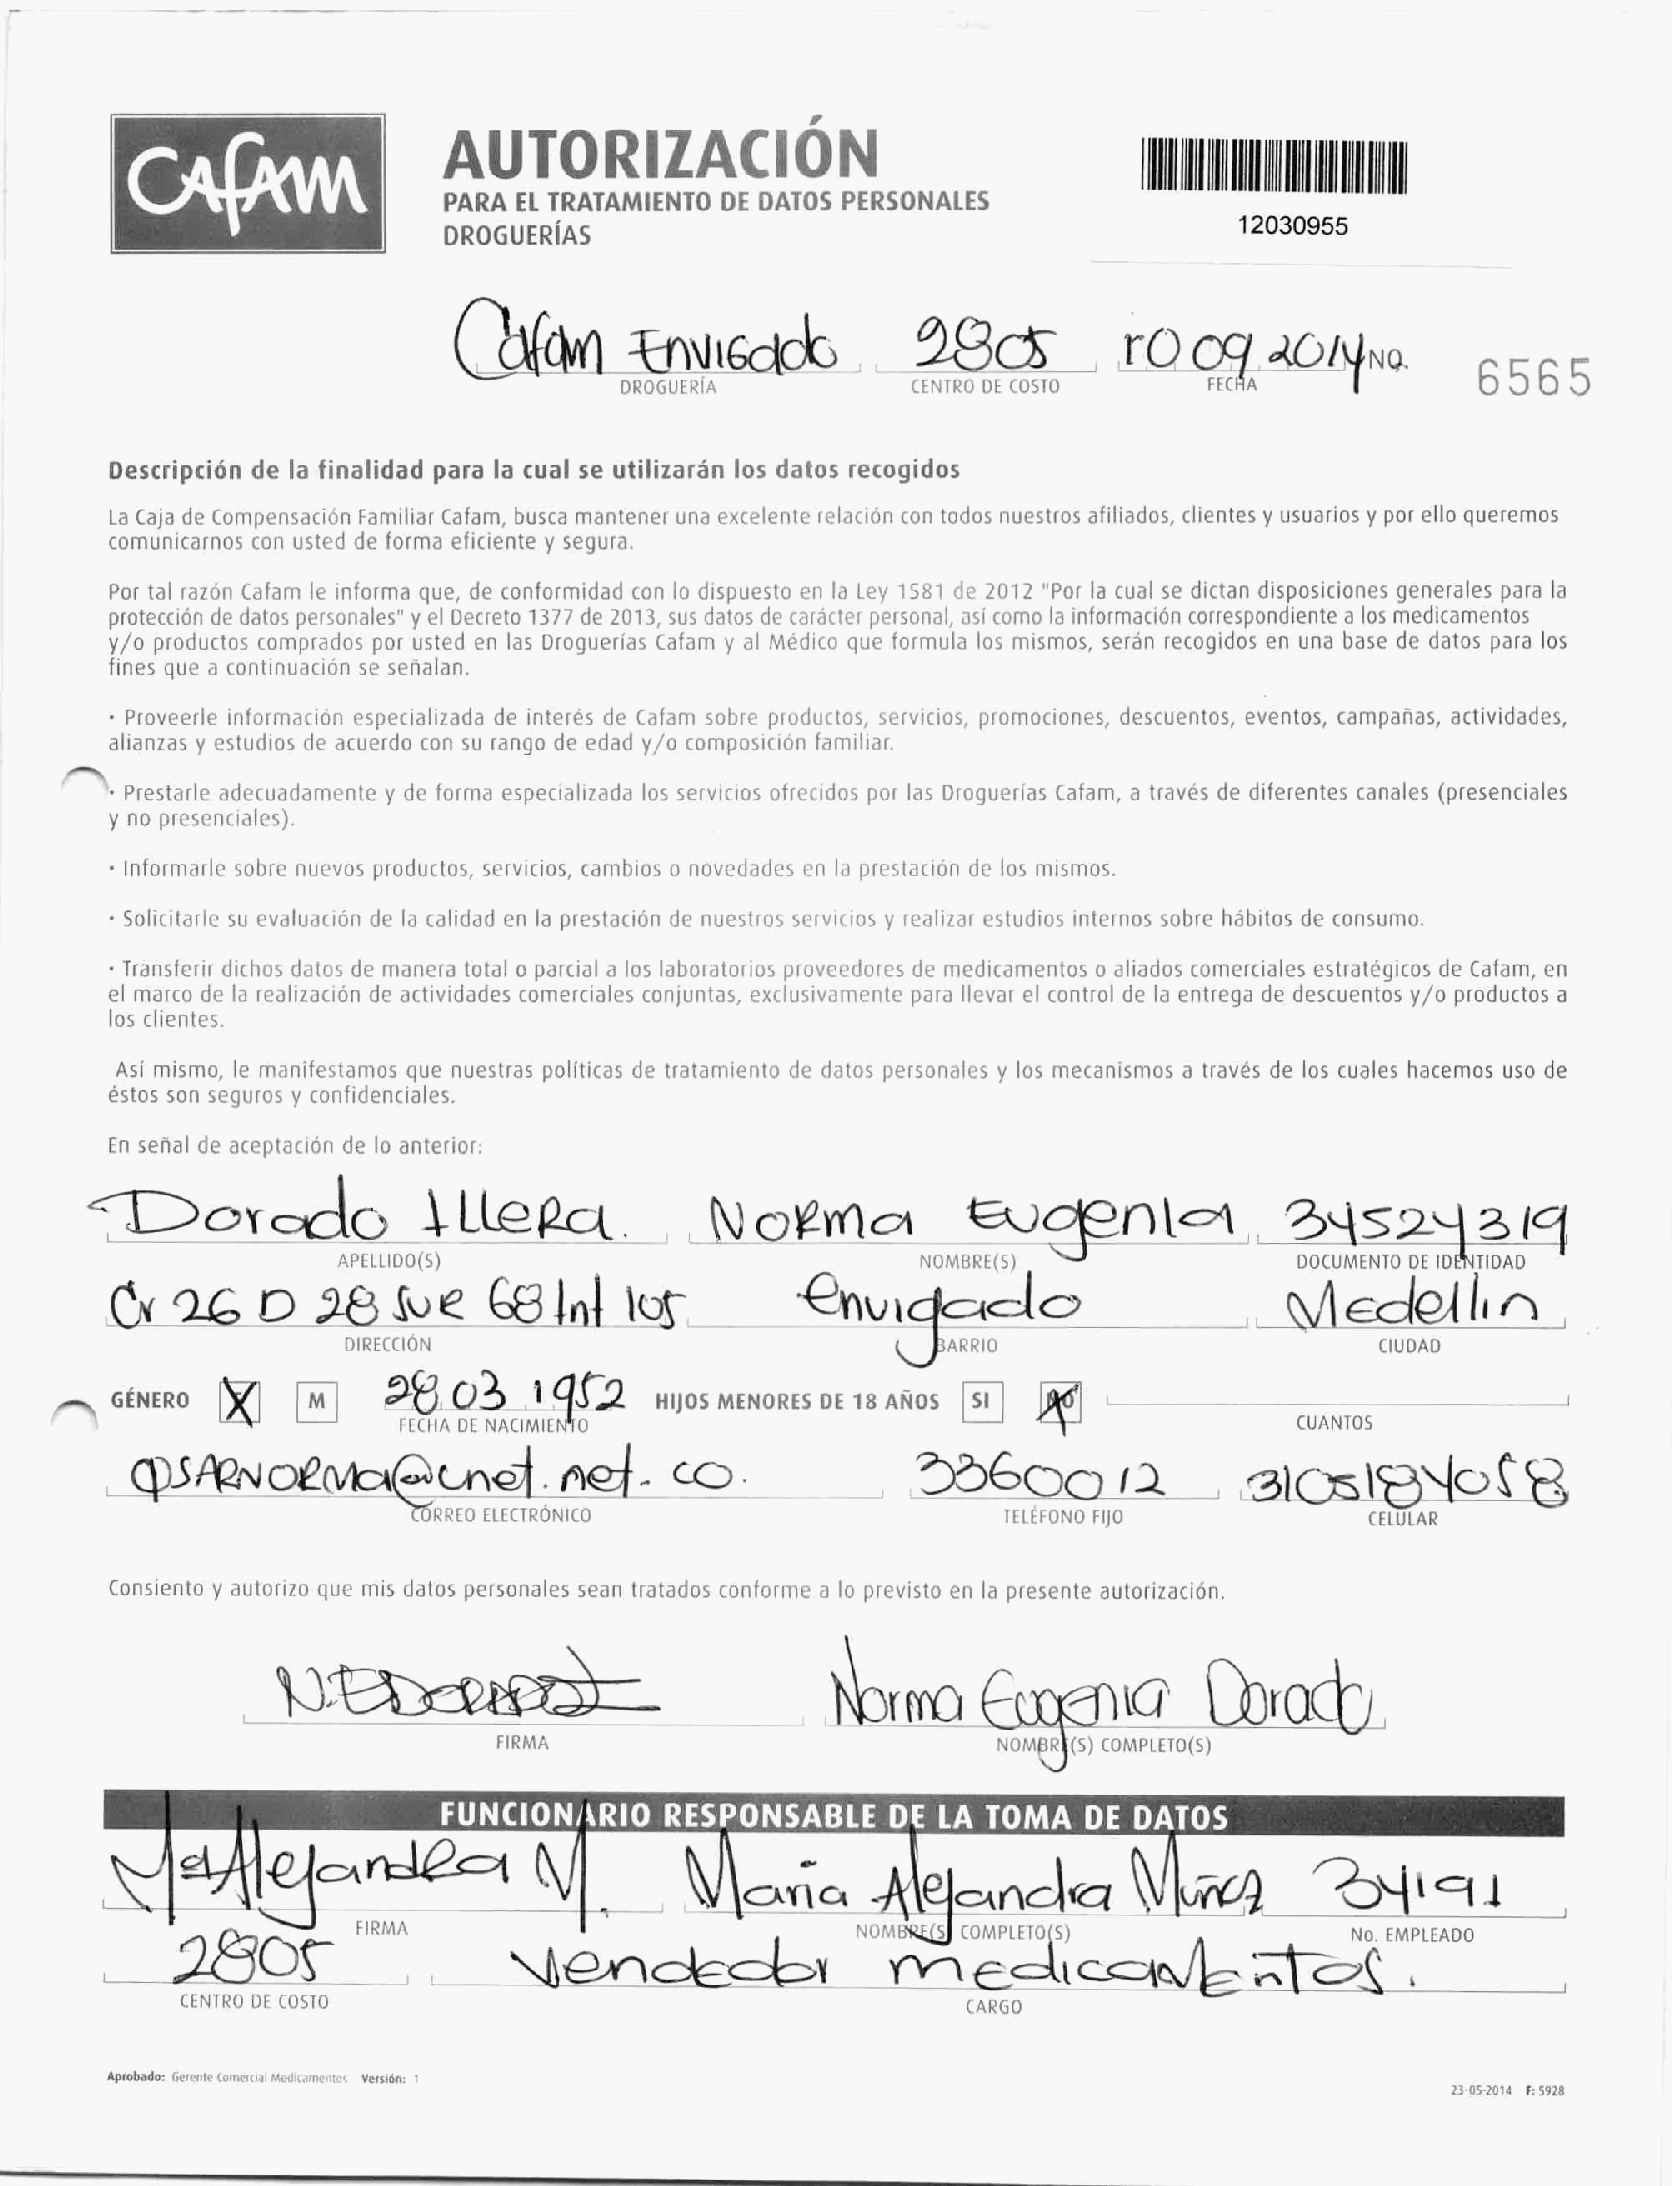 CAFAM
AUTORIZACIÓN
PARA EL TRATAMIENTO DE DATOS PERSONALES
DROGUERÍAS
12030955
Cafam Envigado 2805 10 09 2014 No. 6565
DROGUERÍA CENTRO DE COSTO FECHA
Descripción de la finalidad para la cual se utilizarán los datos recogidos
La Caja de Compensación Familiar Cafam, busca mantener una excelente relación con todos nuestros afiliados, clientes y usuarios y por ello queremos
comunicarnos con usted de forma eficiente y segura.
Por tal razón Cafam le informa que, de conformidad con lo dispuesto en la Ley 1581 de 2012 "Por la cual se dictan disposiciones generales para la
protección de datos personales" y el Decreto 1377 de 2013, sus datos de carácter personal, así como la información correspondiente a los medicamentos
y/o productos comprados por usted en las Droguerías Cafam y al Médico que formula los mismos, serán recogidos en una base de datos para los
fines que a continuación se señalan.
· Proveerle información especializada de interés de Cafam sobre productos, servicios, promociones, descuentos, eventos, campañas, actividades,
alianzas y estudios de acuerdo con su rango de edad y/o composición familiar.
· Prestarle adecuadamente y de forma especializada los servicios ofrecidos por las Droguerías Cafam, a través de diferentes canales (presenciales
y no presenciales).
· Informarle sobre nuevos productos, servicios, cambios o novedades en la prestación de los mismos.
· Solicitarle su evaluación de la calidad en la prestación de nuestros servicios y realizar estudios internos sobre hábitos de consumo.
· Transferir dichos datos de manera total o parcial a los laboratorios proveedores de medicamentos o aliados comerciales estratégicos de Cafam, en
el marco de la realización de actividades comerciales conjuntas, exclusivamente para llevar el control de la entrega de descuentos y/o productos a
los clientes.
Así mismo, le manifestamos que nuestras políticas de tratamiento de datos personales y los mecanismos a través de los cuales hacemos uso de
éstos son seguros y confidenciales.
En señal de aceptación de lo anterior:
Dorado Illera Norma Eugenia 34524319
APELLIDO(S) NOMBRE(S) DOCUMENTO DE IDENTIDAD
Cr 26 D 28 sur 68 Int 105 envigado Medellin
DIRECCIÓN BARRIO CIUDAD
GÉNERO X M 28 03 1952 HIJOS MENORES DE 18 AÑOS SI NO
FECHA DE NACIMIENTO CUANTOS
@cnet.net.co. 3360012 3105184058
CORREO ELECTRÓNICO TELÉFONO FIJO CELULAR
Consiento y autorizo que mis datos personales sean tratados conforme a lo previsto en la presente autorización.
Norma Eugenia Dorado
FIRMA NOMBRE(S) COMPLETO(S)
FUNCIONARIO RESPONSABLE DE LA TOMA DE DATOS
Ma Alejandra M. Maria Alejandra Muñoz 34191
FIRMA NOMBRE(S) COMPLETO(S) No. EMPLEADO
2805 Vendedor medicamentos.
CENTRO DE COSTO CARGO
Aprobado: Gerente Comercial Medicamentos Versión: 1
23-05-2014 F: 5928